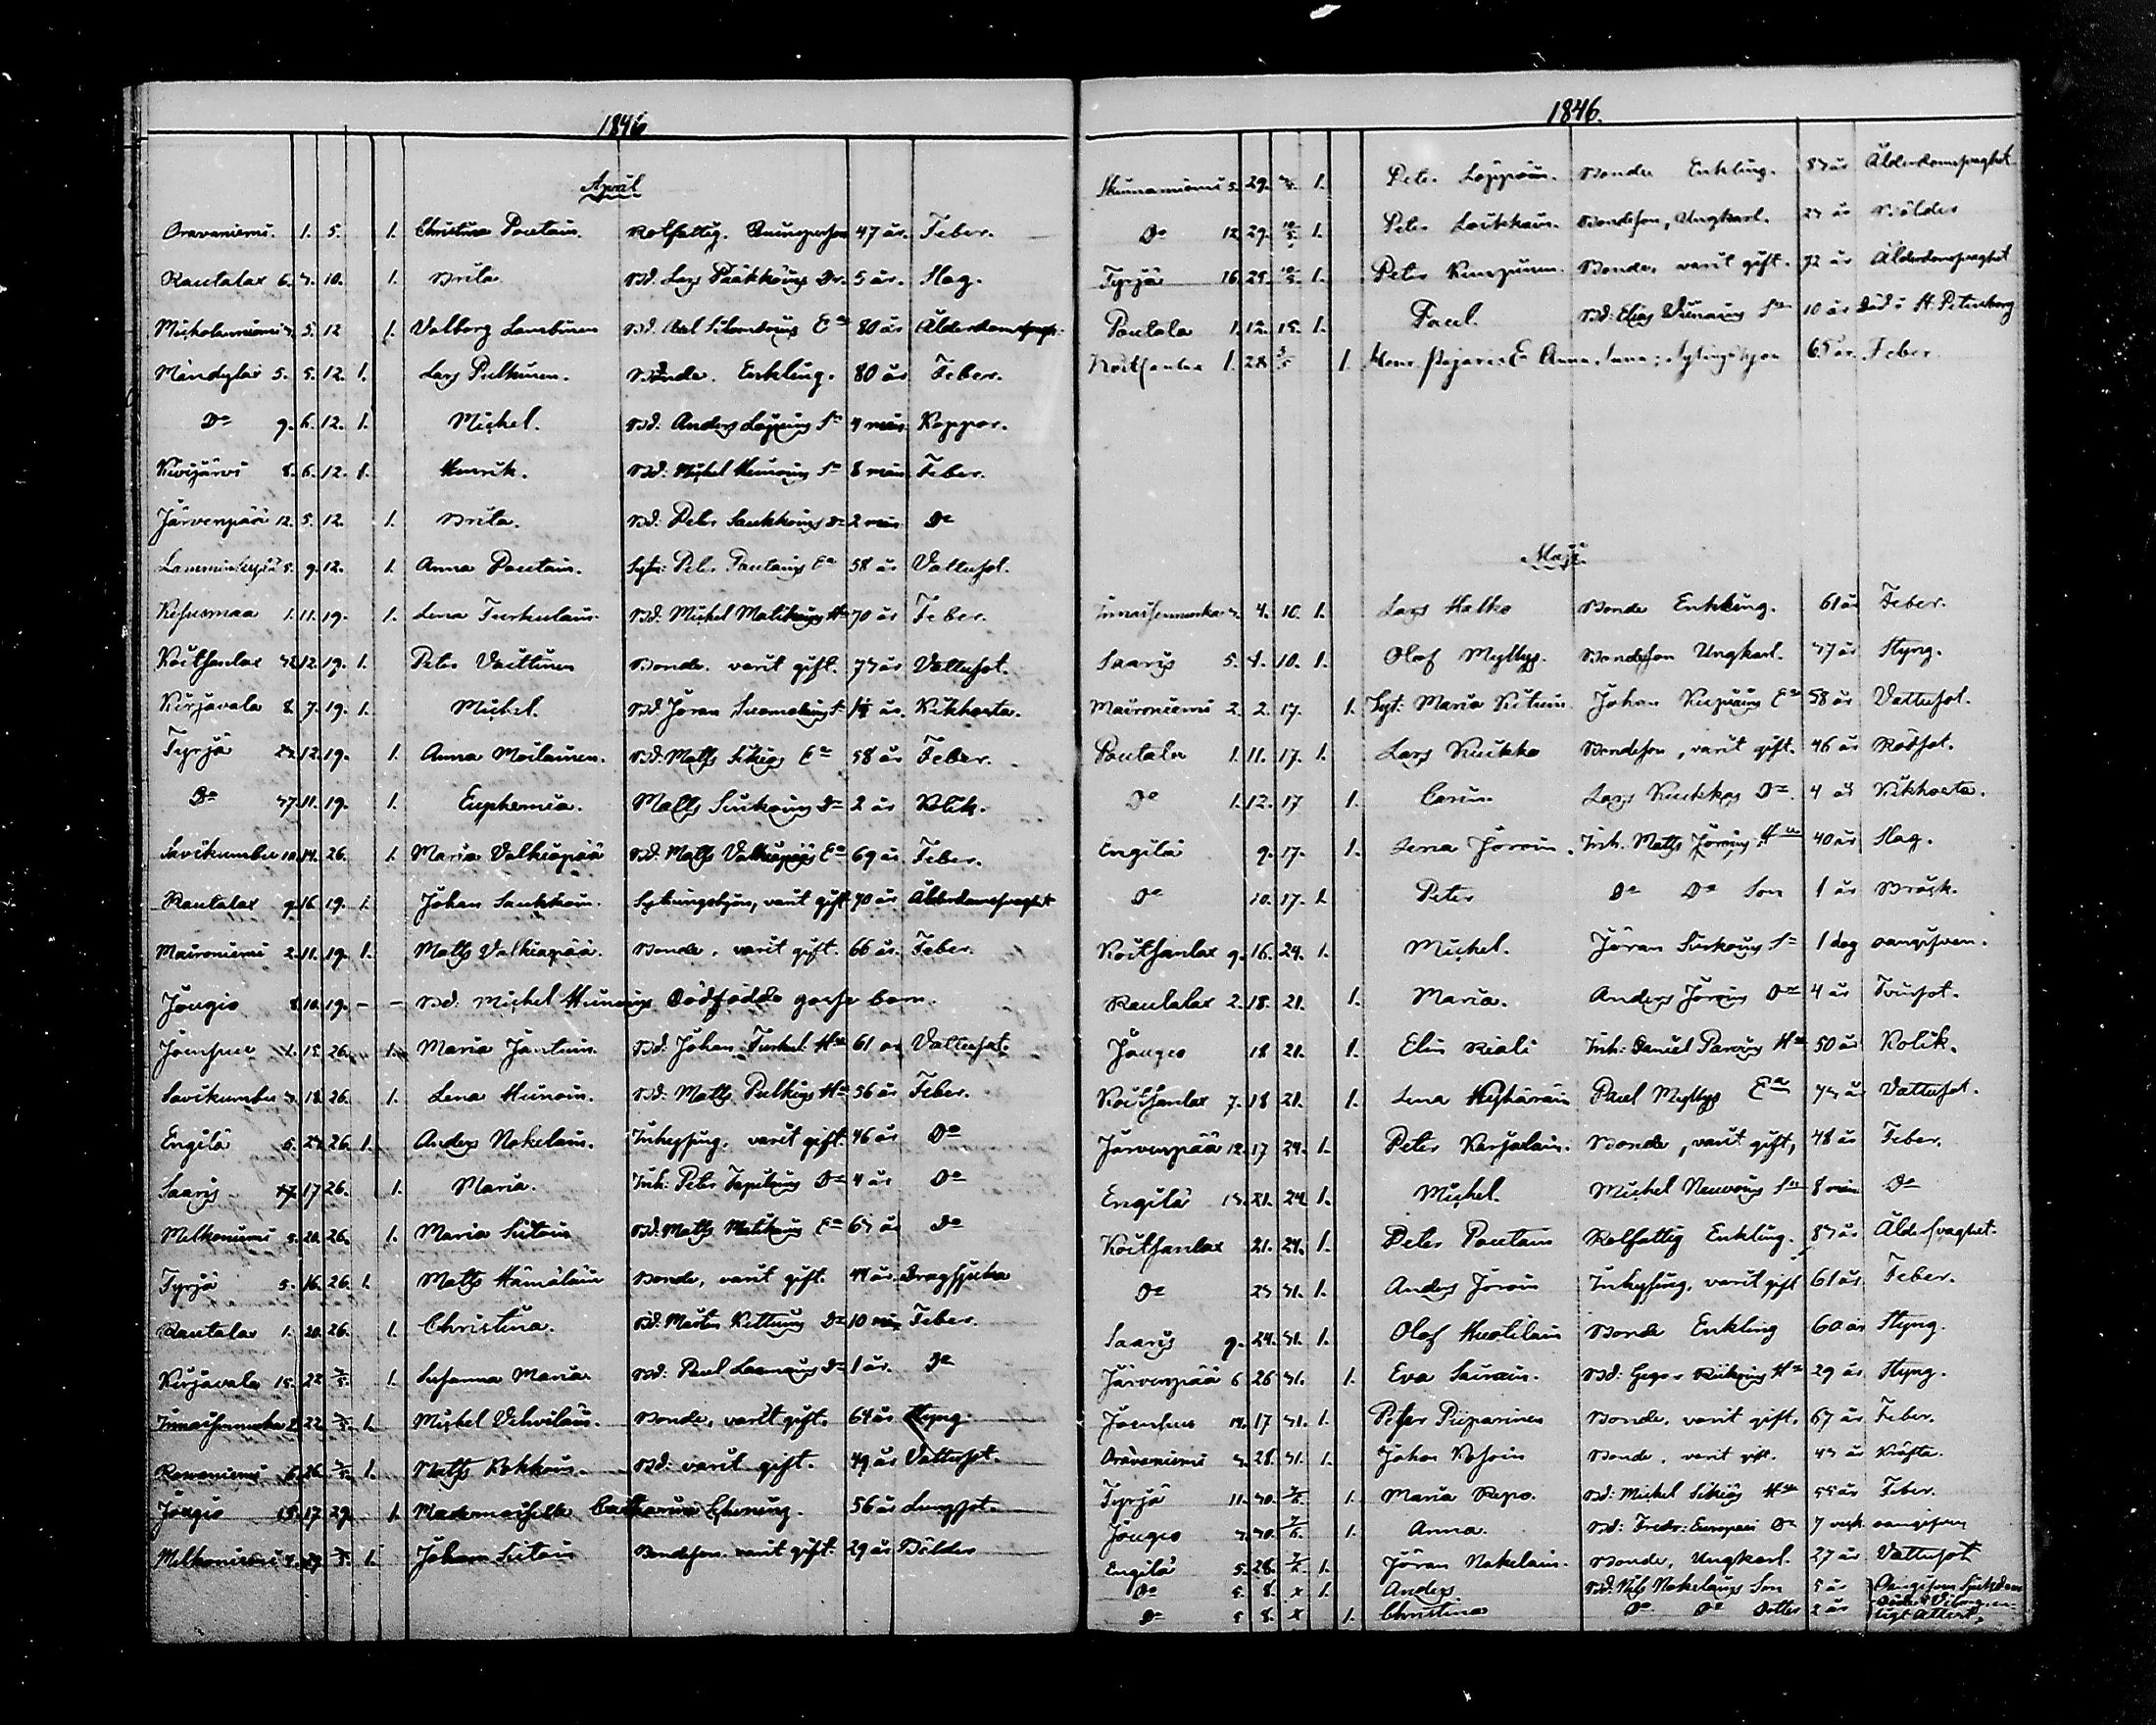 1846
April
Oravaniemi. 1. 5. 1. Christina Poutain. Rotfattig. Qvinsperson 47 år. Feber.
Rautalax 6. 3. 10. 1. Brita Bd. Lars Pääkköins Dr. 5 år. Slag.
Mickolanniemi 5. 12 1. Valborg Lambinen Bd. 80 år Ålderdomssvagh.
Mändylax 5. 5. 12. 1. Lars Pulkinen. Bonde. Enkling. 80 år Feber.
Do 9. 6. 12. 1. Michel. Bd. Anders Sn 4 mån. Koppor.
Kivijärvi 8. 6. 12. 1. Henrik. Bd: Michel Sn 8 mån Feber.
Järvenpää 12. 5. 12. 1. Brita. Bd: Peter Saukkoins Dr 2 mån Do
5. 9. 12. 1. Anna Poutain. Peter Poutains Ea 58 år Vattusot.
Kesusmaa 1. 11. 19. 1. Lena Turkulain. Bd: Michel Malikains Hu 70 år Feber.
Koitsanlax 32. 12. 19. 1. Peter Vaittinen Bonde. varit gift. 73 år Vattusot.
Kirjavala 8. 7. 19. 1. Michel. Bd Jöran Suomalains Sn år. Kikhosta.
Tyrjä 23. 12. 19. 1. Anna Moilainen. Bd: Matts Sikiös Ea 58 år Feber.
Do 37. 11. 19. 1. Euphemia. Matts Sinkoins Dr 2 år Kolik.
Savikumbu 10. 14. 26. 1. Maria Valkiapää Bd: Matts Valkiapääs Ea 69 år. Feber.
Rautalax 9. 16. 19. 1. Johan Saukkoin. Sytningshjon, varit gift 70 år Ålderdomssvaghet
Maironiemi 2. 11. 19. 1. Matts Valkiapää. Bonde. varit gift. 66 år. Feber.
Jougio 8. 10. 19. — — Bd: Michel Dödfödda gosse barn.
Joensuu 1. 15. 26. 1. Maria Jantuin. Bd: Johan Turkul. Hu 61 år Vattusot.
Savikumbu 3. 18. 26. 1. Lena Hinoin. Bd: Matts Pulkins Hu 56 år Feber.
Engilä 5. 23. 26. 1. Anders Nokelain. Inhysing, varit gift. 46 år Do
Saaris 17. 17 26. 1. Maria. Inh: Peter Dr 4 år Do
Melkoniemi 5. 20. 26. 1. Maria Siitoin Bd: Matts Ea 63 år Do
Tyrjä 5. 16. 26. 1. Matts Hämäläin Bonde, varit gift. 44 år. Bragsjuka
Rautalax 1. 20. 26. 1. Christina. Bd. Mårten Kettuns Dr 10 mån Feber.
Kirjavala 15. 22 3/5. 1. Susanna Maria Bd: Paul Dr 1 år. Do
22 3/5 1. Michel Vehviläin. Bonde, varit gift. 64 år Styng.
26. 3/5 1. Matts Bd: varit gift. 49 år Vattusot.
Jougio 15. 17. 29. 1. Mademoiselle Catharina 56 år Lungsot.
Melkoniemi 4. 29. 1. Johan Siitoin Bondeson. varit gift. 29 år Bölder
1846.
5. 29. 1. Peter Loppoin. Bonde Enkling. 83 år Ålderdomssvaghet
Do 12 29. 10/5. 1. Peter Loukkain. Bondeson, Ungkarl. 23 år Bölder
Tyrjä 16. 25. 10/5. 1. Peter Kumpuinen. Bonde, varit gift. 72 år Ålderdomssvaghet
Poutala 1. 12. 15. 1. Paul. Bd: Elias Sn 10 år Död i St. Petersborg
Koitsanlax 1. 28. 3/5 1. E. Anna 65 år. Feber
Maji.
3. 4. 10. 1. Lars Halko Bonde Enkling. 61 år Feber.
Saaris 5. 4. 10. 1. Olof Myllys. Bondeson Ungkarl. 37 år Styng.
Maironiemi 2. 2. 17. 1. Syt: Maria Kituin Johan Ea 58 år Vattusot.
Poutala 1. 11. 17. 1. Lars Kuikko Bondeson, varit gift. 46 år Rödsot.
Do 1. 12. 17 1. Carin. Lars Kuikkas Dr. 4 år Kikhosta.
Engilä 9. 17. 1. Lena Jöroin. Inh. Matts Jöroins Hu 40 år Slag.
Do 10. 17. 1. Peter Do Do Son 1 år Bråck.
Koitsanlax 9. 16. 24. 1. Michel. Jöran Sinkoins Sn 1 dag oangifven.
Rautalax 2. 18. 21. 1. Maria. Anders Jöroins Dr 4 år Tvinsot.
Jougio 18 21. 1. Elin Riali Inh: Daniel Hu 50 år Kolik.
Koitsanlax 7. 18 21. 1. Lena Paul Myllys Ea 73 år Vattusot.
Järvenpää 12. 17 24. 1. Peter Karjalain. Bonde, varit gift, 48 år Feber.
Engilä 13. 21. 24 1. Michel. Michel Neuvoins Sn 8 mån Do
Koitsanlax 21. 24. 1. Peter Poutain Rotfattig Enkling. 83 år Ålderssvaghet.
Do 23 31. 1. Anders Jöroin Inhysing, varit gift 61 år. Feber.
Saaris 9. 24. 31. 1. Olof Huotilain Bonde Enkling 60 år Styng.
Järvenpää 6 26 31. 1. Eva Sairain. Bd: Hu 29 år Styng.
Joensuu 14. 17 31. 1. Peter Piiparinen Bonde. varit gift. 67 år Feber.
Oravaniemi 3. 28. 31. 1. Johan Bonde. varit gift. 43 år Kräfta.
Tyrjä 11. 30. 7/6. 1. Maria Repo. Bd: Michel Sikiös Hu 55 år Feber.
Jougio 3. 30. 7/6. 1. Anna. Bd: Fredr: Europaei Dr 7 veck oangifven
Engilä 5. 28. 7/6. 1. Jöran Nokelain. Bonde, Ungkarl. 27 år Vattusot
Do 5. 8. x 1. Anders Bd: Nils Nokelains Son 5 år Oangifven Sjukdom
Do 5 8. x 1. Christina Do Do Dotter 2 år ligt Attest.